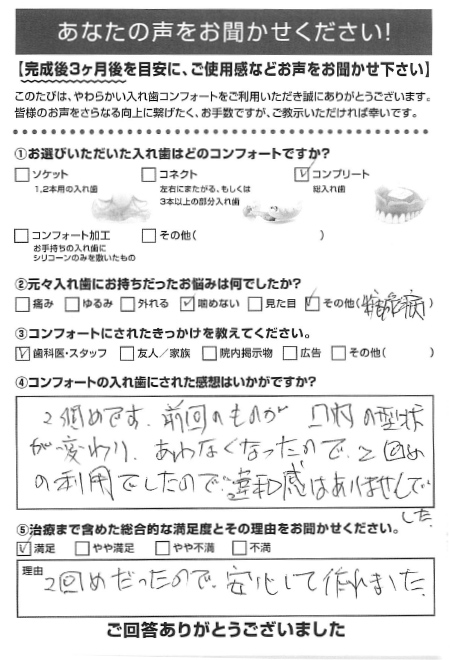 あなたの声をお聞かせください!
【完成後3ヶ月後を目安に、ご使用感などお声をお聞かせ下さい】
このたびは、やわらかい入れ歯コンフォートをご利用いただき誠にありがとうございます。
皆様のお声をさらなる向上に繋げたく、お手数ですが、ご教示いただければ幸いです。
①お選びいただいた入れ歯はどのコンフォートですか?
□ソケット □コネクト ☑コンプリート
1,2本用の入れ歯 左右にまたがる、もしくは 総入れ歯
3本以上の部分入れ歯
□コンフォート加工 □その他( )
お手持ちの入れ歯に
シリコーンのみを敷いたもの
②元々入れ歯にお持ちだったお悩みは何でしたか?
□痛み □ゆるみ □外れる ☑噛めない □見た目 ☑その他(糖尿病)
③コンフォートにされたきっかけを教えてください。
☑歯科医・スタッフ □友人/家族 □院内掲示物 □広告 □その他( )
④コンフォートの入れ歯にされた感想はいかがですか?
2個めです。前回のものが 口内の型状
が変わり、あわなくなったので、2回め
の利用でしたので違和感はありませんで
した。
⑤治療まで含めた総合的な満足度とその理由をお聞かせください。
☑満足 □やや満足 □やや不満 □不満
理由
2回めだったので、安心して作れました
ご回答ありがとうございました